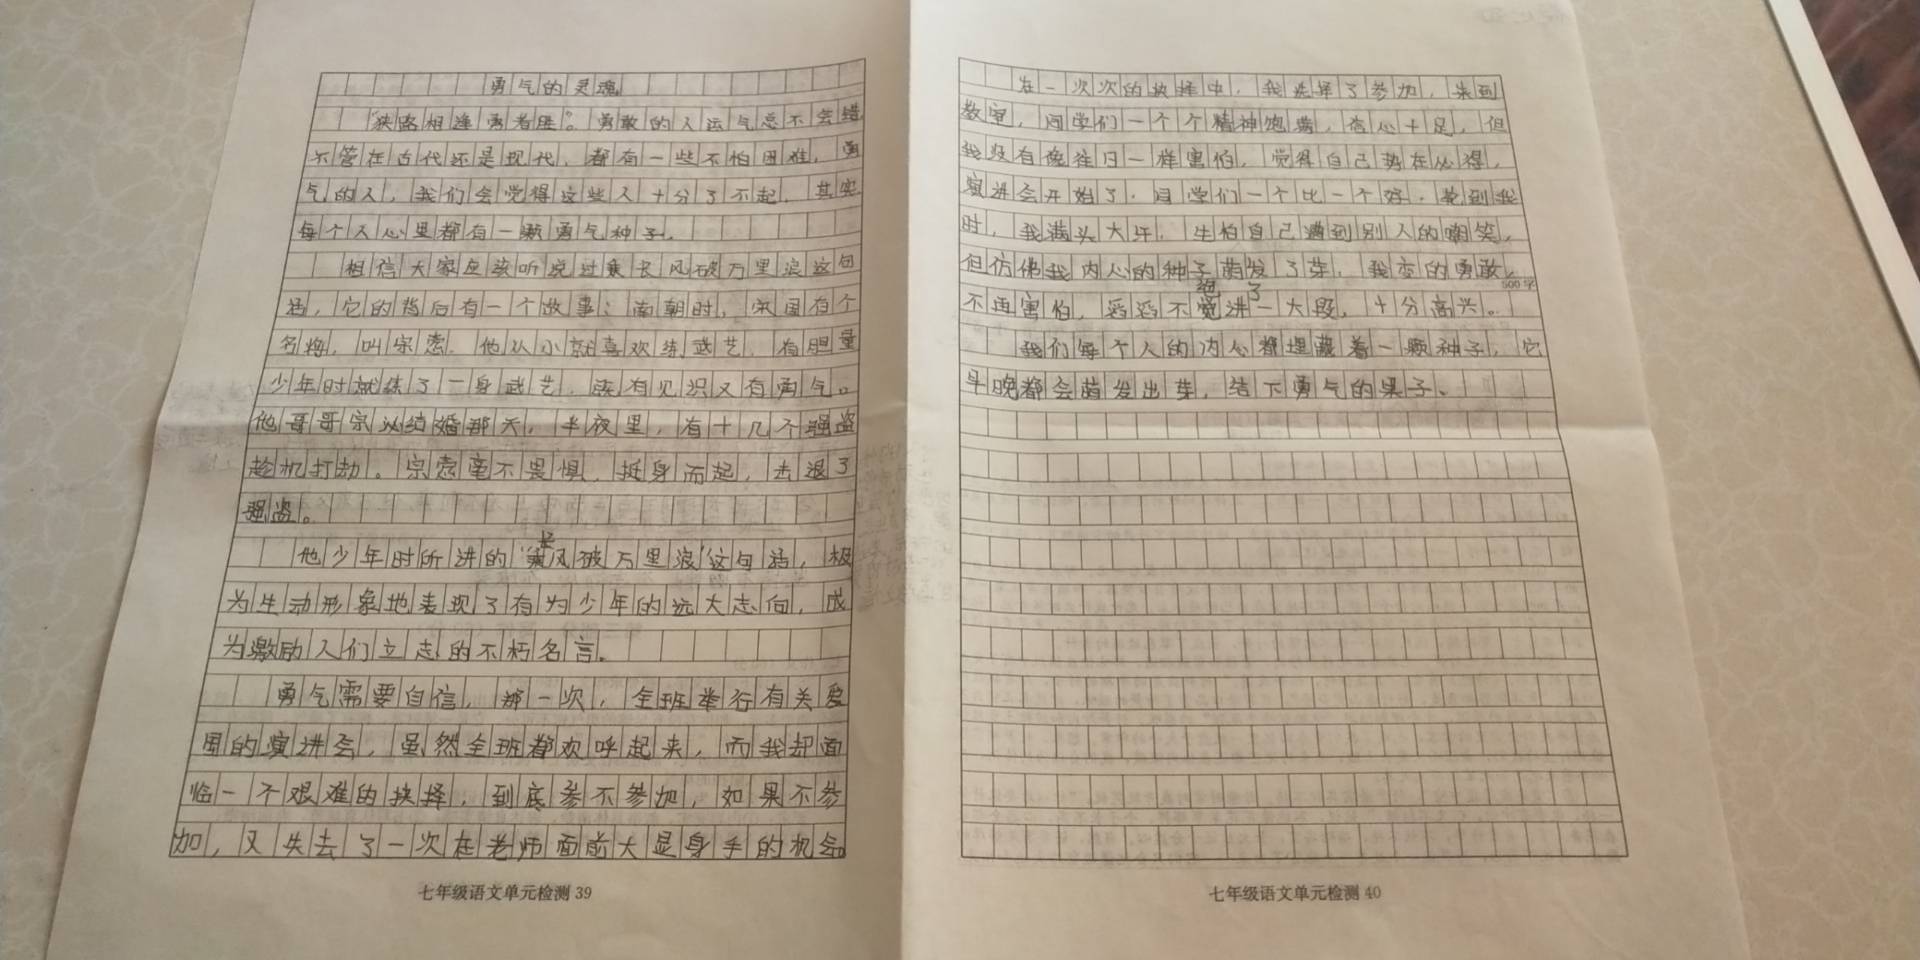 勇气的灵魂
“狭路相逢勇者胜”。勇敢的人运气总不会错
不管在古代还是现代，都有一些不怕困难，勇
气的人，我们会觉得这些人十分了不起，其实
每个人心里都有一颗勇气种子。
相信大家应该听说过乘长风破万里浪这句
话，它的背后有一个故事：南朝时，宋国有个
名将，叫宗悫，他从小就喜欢练武艺，有胆量
少年时就练了一身武艺，既有见识又有勇气。
他哥哥宗必结婚那天，半夜里，有十几个强盗
趁机打劫。宗悫毫不畏惧，挺身而起，击退了
强盗。
他少年时所讲的“乘长风破万里浪”这句话，极
为生动形象地表现了有为少年的远大志向，成
为激励人们立志的不朽名言。
勇气需要自信，那一次，全班举行有关爱
国的演讲会，虽然全班都欢呼起来，而我却面
临一个艰难的抉择，到底参不参加，如果不参
加，又失去了一次在老师面前大显身手的机会。
七年级语文单元检测 39
在一次次的抉择中，我选择了参加，来到
教室，同学们一个个精神饱满，信心十足，但
我没有像往日一样害怕，觉得自己势在必得，
演讲会开始了，同学们一个比一个好，轮到我
时，我满头大汗，生怕自己遭到别人的嘲笑，
但仿佛我内心的种子萌发了芽，我变的勇敢，
500字
不再害怕，滔滔不绝讲了一大段，十分高兴。
我们每个人的内心都埋藏着一颗种子，它
早晚都会萌发出芽，结下勇气的果子。
七年级语文单元检测 40